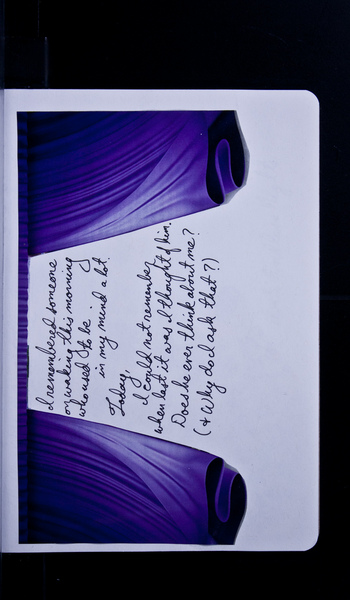 I remembered someone
on waking this morning
who used to be
in my mind a lot.
Today,
I could not remember
when last it was I thought of him.
Does he ever think about me?
(& Why do I ask that?)